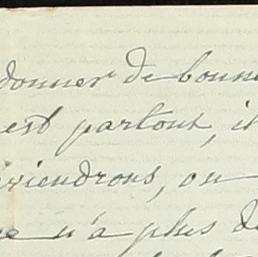 donner de bonne
est partout, il
viendrons, ou
n'a plus de